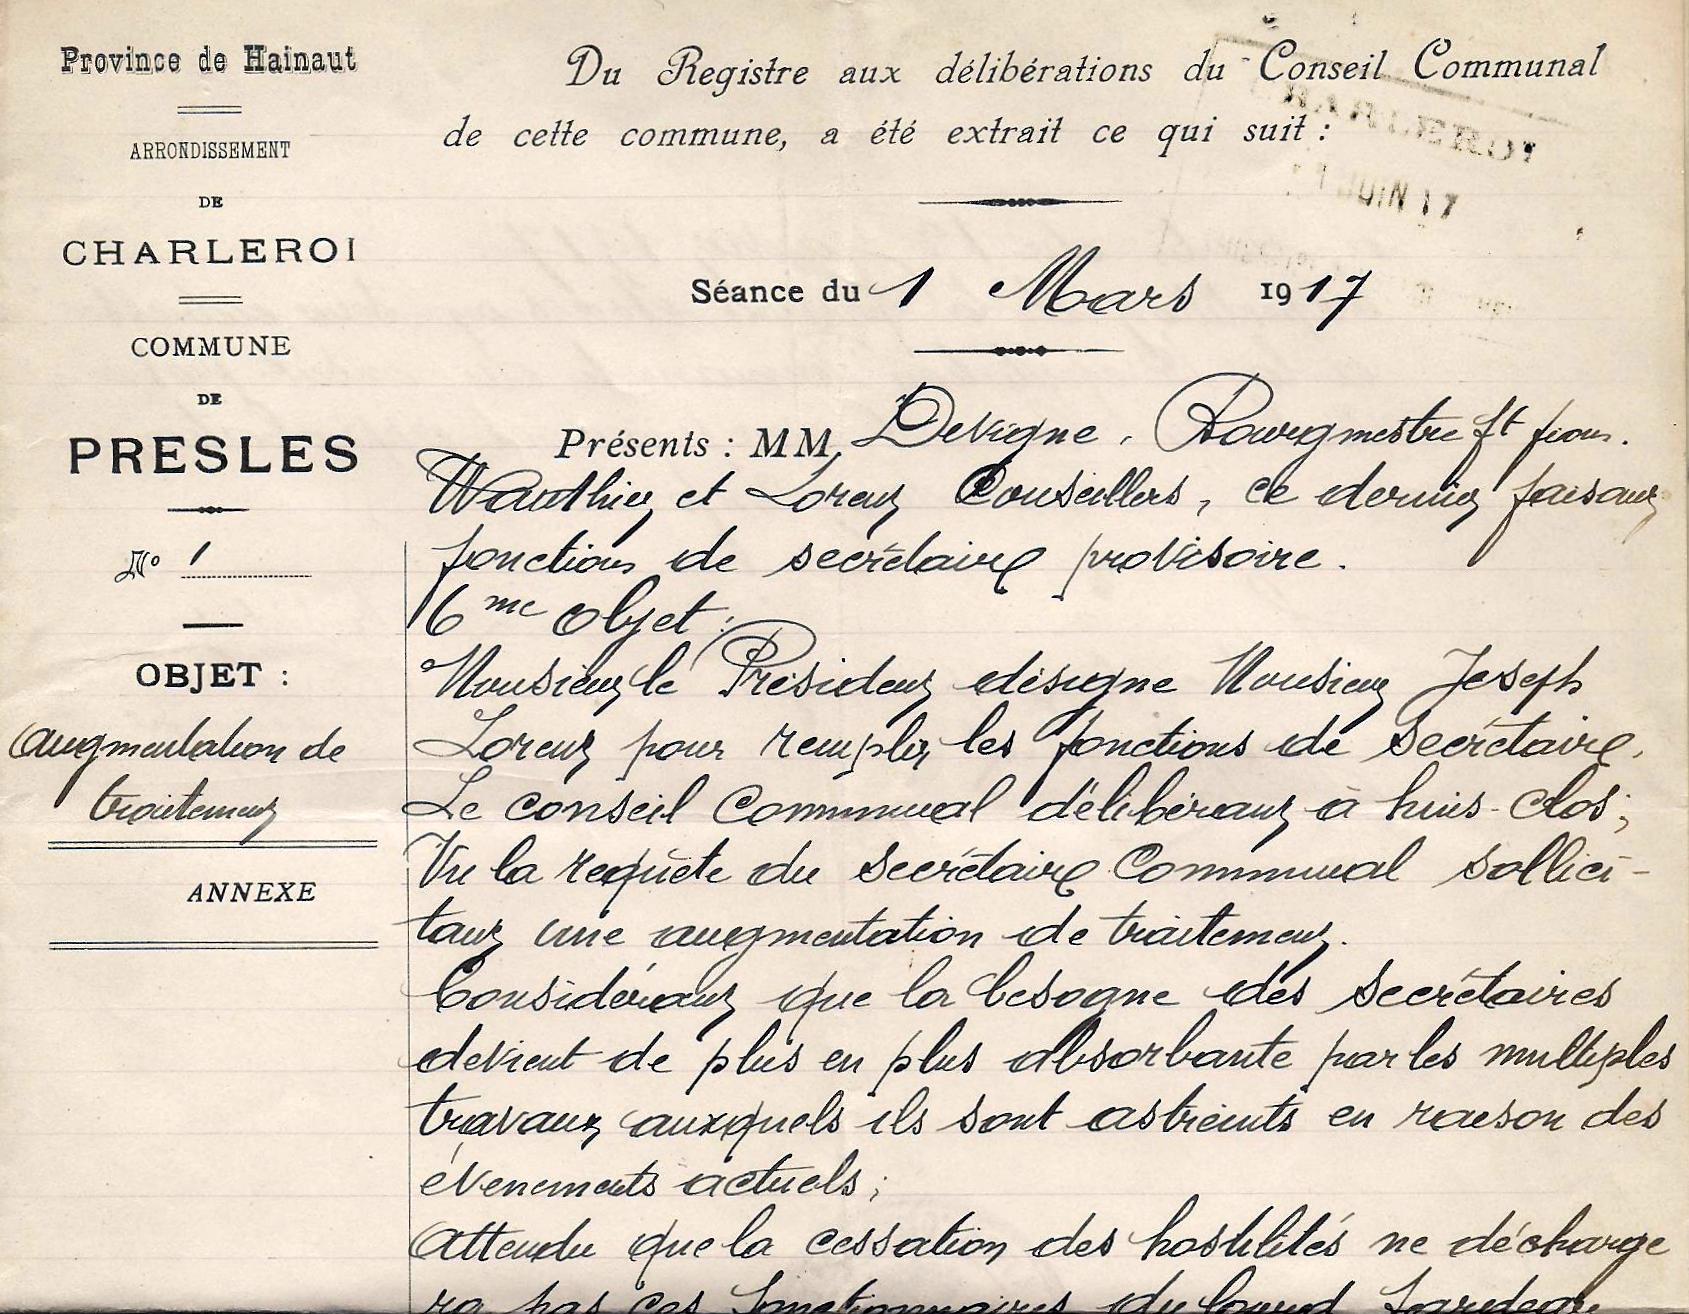 Province de Hainaut
ARRONDISSEMENT
DE
CHARLEROI
COMMUNE
DE
PRESLES
N° 1
OBJET :
augmentation de
traitement
ANNEXE
Du Registre aux délibérations du Conseil Communal
de cette commune, a été extrait ce qui suit :
Séance du 1 Mars 1917
Présents : MM. Devigne, Bourgmestre ft fions.
Wauthier et Lorent Conseillers, ce dernier faisant
fonctions de secrétaire provisoire.
6me objet :
Monsieur le Président désigne Monsieur Joseph
Lorent pour remplir les fonctions de Secrétaire.
Le conseil Communal délibérant à huis-clos;
Vu la requête du Secrétaire Communal sollici-
tant une augmentation de traitement.
Considérant que la besogne des Secrétaires
devient de plus en plus absorbante par les multiples
travaux auxquels ils sont astreints en raison des
évenements actuels;
Attendu que la cessation des hostilités ne décharge
ra pas ces fonctionnaires du lourd fardeau